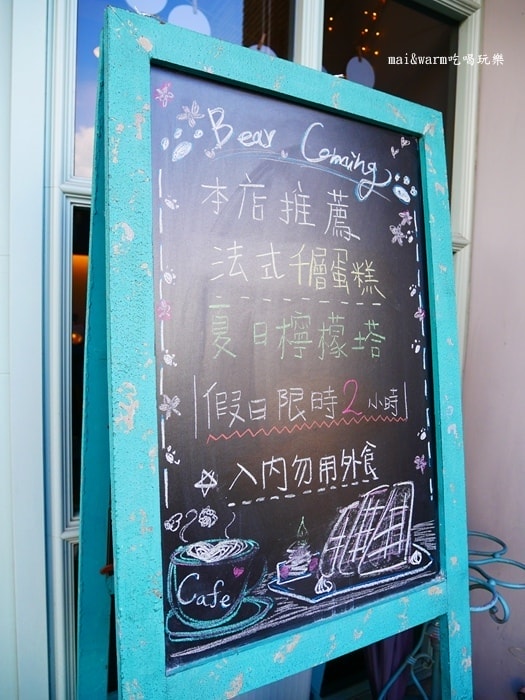 mai&warm吃喝玩樂
Bear Comaing
本店推薦
法式千層蛋糕
夏日檸檬塔
假日限時2小時
☆入內勿用外食
Cafe